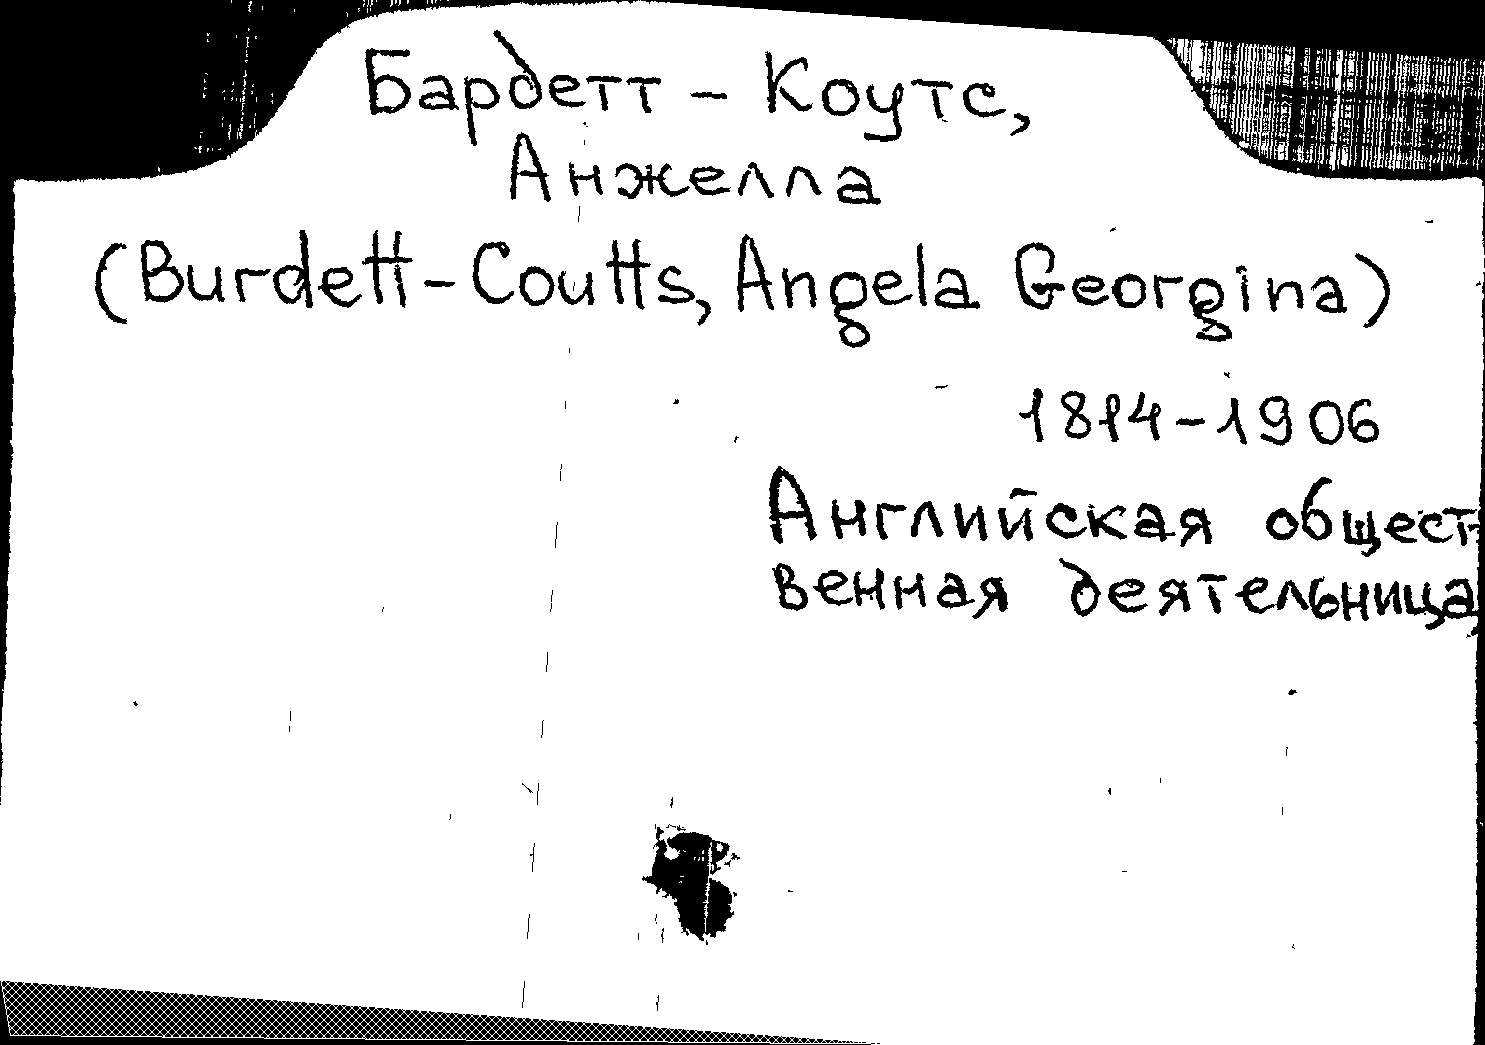 Бардетт - Коутс,
Анжелла
(Burdett-Coutts, Angela Georgina)
1814-1906
Английская общест-
венная деятельница,